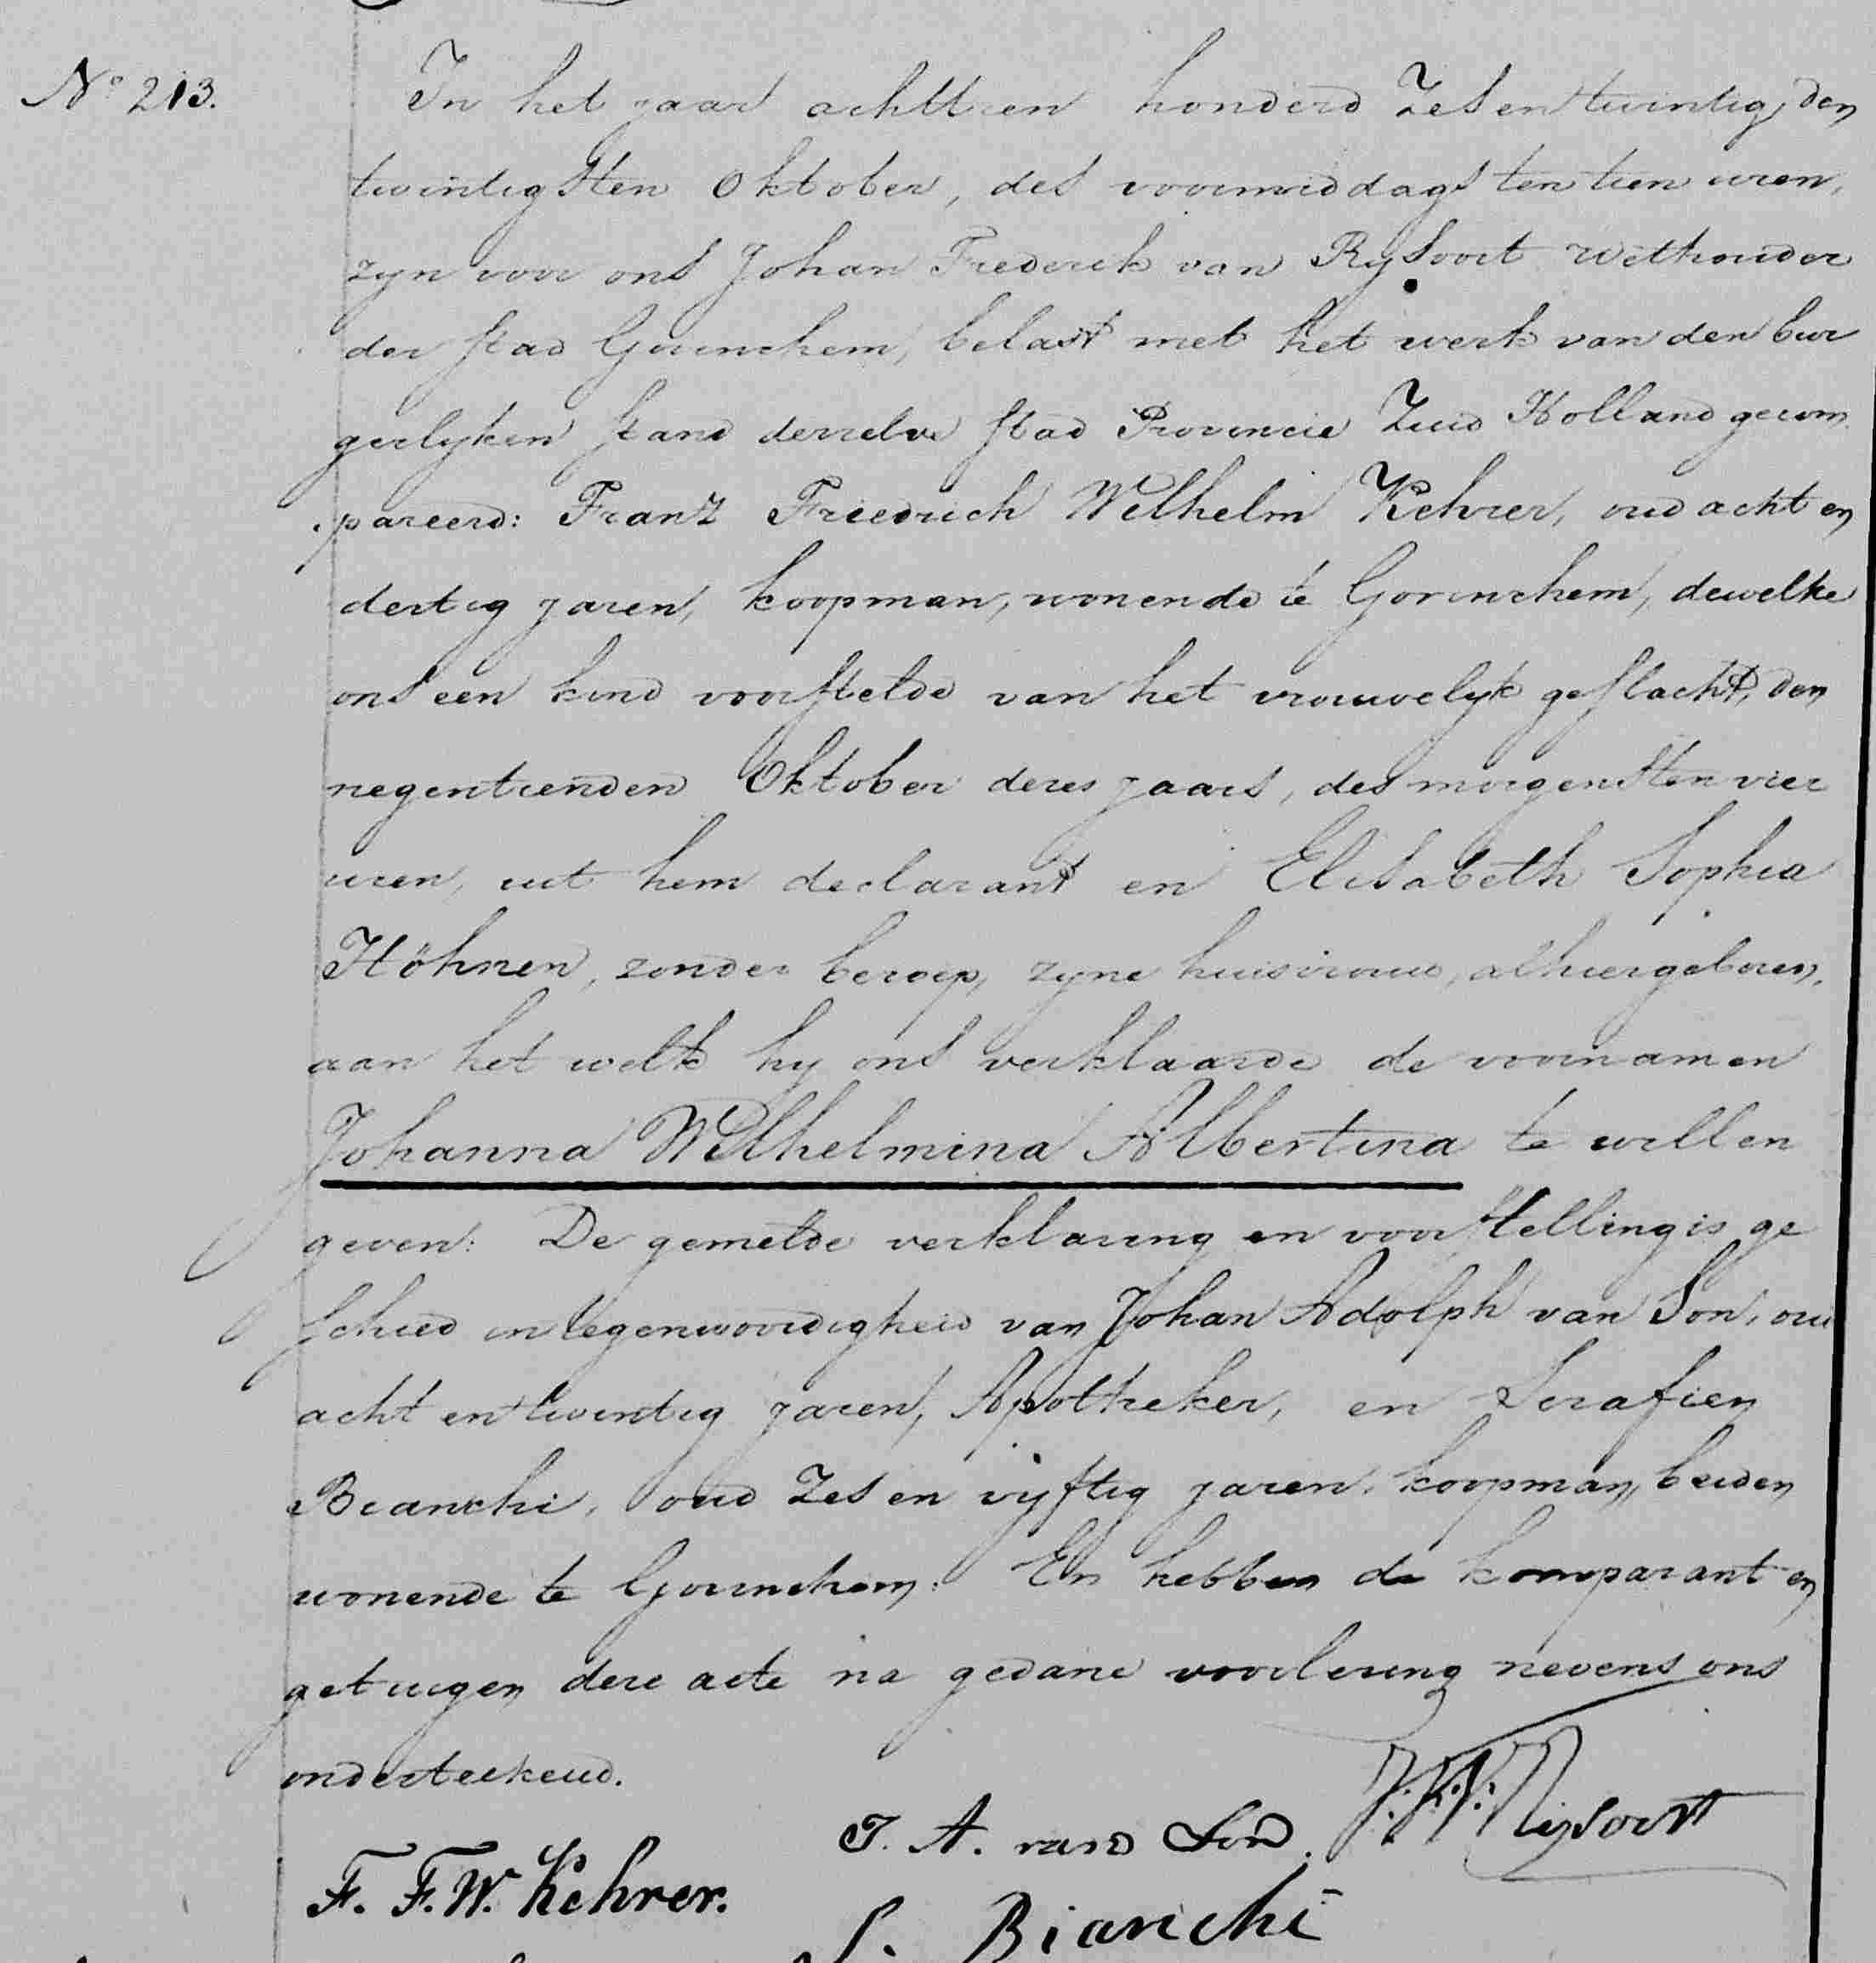 No 213.
In het jaar achttien honderd Zes en twintig, den
twintigsten Oktober, des voormiddags ten tien uren,
zyn voor ons Johan Frederik van Rysoort Wethouder
der stad Gorinchem, belast met het werk van den bur
gerlyken stand derzelve stad Provincie Zuid Holland gecom
pareerd: Franz Friedrich Wilhelm Kehrer, oud acht en
dertig jaren, koopman, wonende te Gorinchem, dewelke
ons een kind voorstelde van het vrouwelyk geslacht, den
negentienden Oktober dezes jaars, des morgens ten vier
uren, uit hem declarant en Elisabeth Sophia
Höhnen, zonder beroep, zyne huisvrouw, alhier geboren,
aan het welk hy ons verklaarde de voornamen
Johanna Wilhelmina Albertina te willen
geven: De gemelde verklaring en voorstelling is ge
schied in tegenwoordigheid van Johan Adolph van Son, oud
acht en twintig jaren, Apotheker, en Serafien
Bianchi, oud Zes en vyftig jaren, koopman, beiden
wonende te Gorinchem: En hebben de komparant en
getuigen deze acte na gedane voorlezing nevens ons
onderteekend.
J. A. van Son. J. F. V. Rijsoort
F. F. W. Kehrer.
S. Bianchi